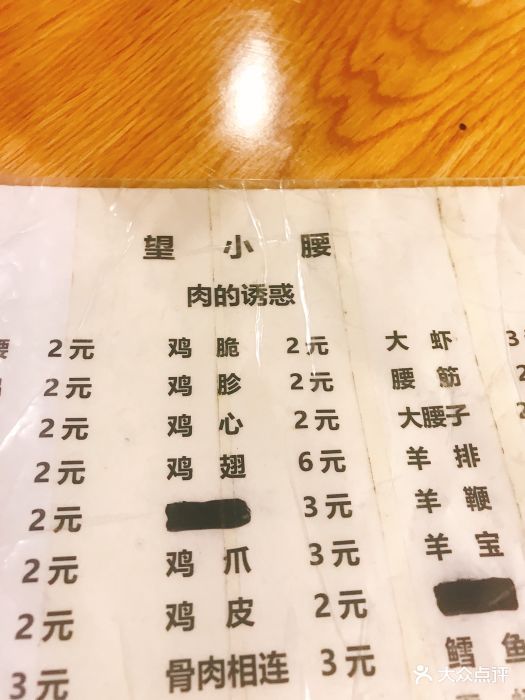 望 小 腰
肉的诱惑
腰 2元 鸡 脆 2元 大 虾 3
2元 鸡 胗 2元 腰 筋 2
2元 鸡 心 2元 大腰子 2
2元 鸡 翅 6元 羊 排
2元 3元 羊 鞭
2元 鸡 爪 3元 羊 宝
2元 鸡 皮 2元
3元 骨肉相连 3元 鳕 鱼
大众点评